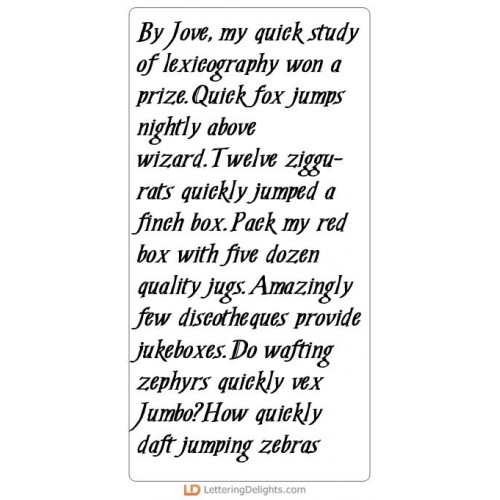 By Jove, my quick study
of lexicography won a
prize.Quick fox jumps
nightly above
wizard.Twelve ziggu-
rats quickly jumped a
finch box.Pack my red
box with five dozen
quality jugs.Amazingly
few discotheques provide
jukeboxes.Do wafting
zephyrs quickly vex
Jumbo?How quickly
daft jumping zebras
LD LetteringDelights.com